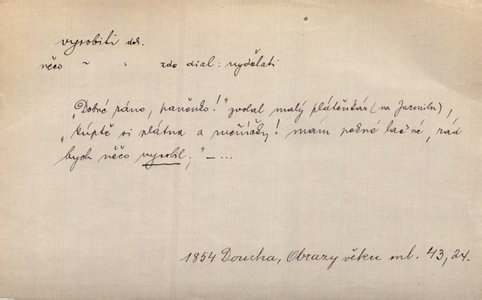 vyrobiti dok.
něco ~ " zde dial: vydělati
„Dobré ráno, panenko!" zvolal malý plátěnkář (na Jarmilu),
„kupte si plátna aměřičky! mám pěkné laciné, rád
bych něčo vyrobil;" — ...
1854 Doucha, Obrazy věku ml. 43, 24.